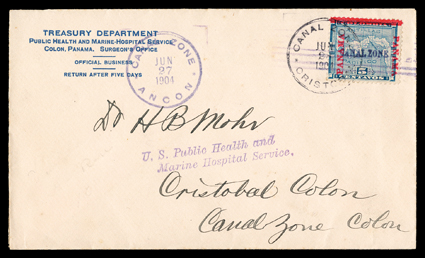 TREASURY DEPARTMENT
PUBLIC HEALTH AND MARINE-HOSPITAL SERVICE
COLON, PANAMA, SURGEON'S OFFICE
OFFICIAL BUSINESS
RETURN AFTER FIVE DAYS
CANAL ZONE
JUN
27
1904
ANCON
CANAL
JU
CRISTO
PANAMA
CANAL ZONE
PANAMA
5
Dr H B Mohr
U. S. Public Health and
Marine Hospital Service.
Cristobal Colon
Canal Zone Colon